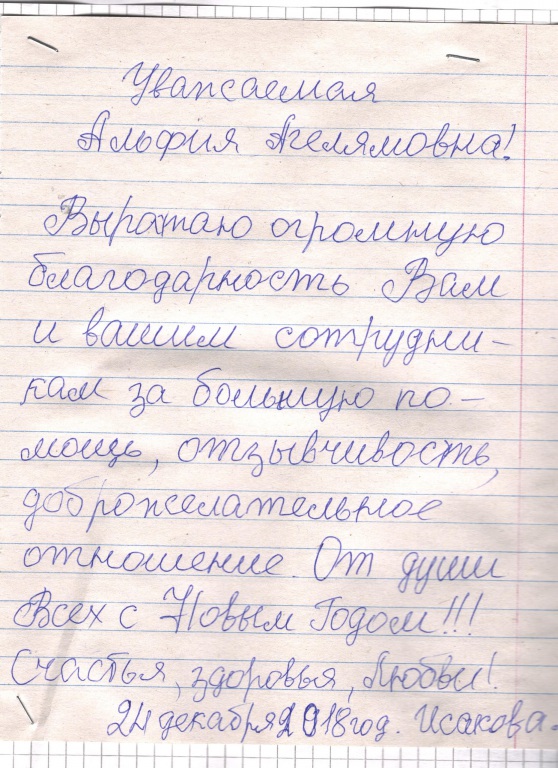 Уважаемая
Альфия Агелямовна!
Выражаю огромную
благодарность Вам
и вашим сотрудни-
кам за большую по-
мощь, отзывчивость,
доброжелательное
отношение. От души
Всех с Новым Годом!!!
Счастья, здоровья, Любви!
24 декабря 2018 год. Исакова.